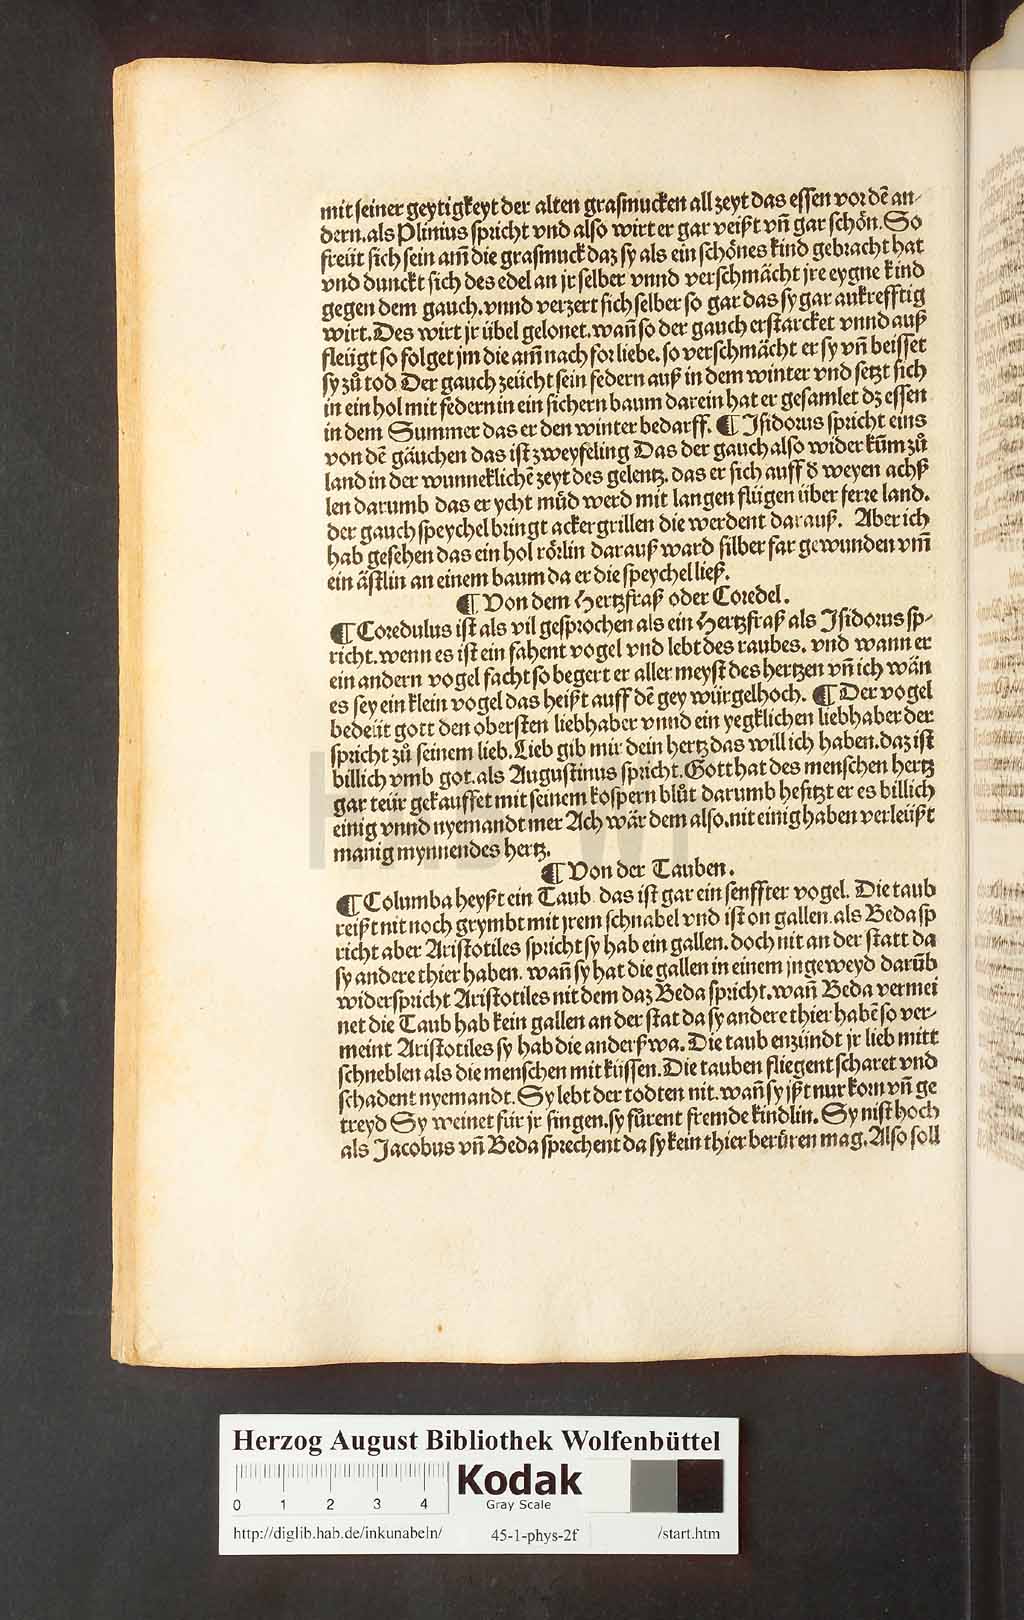 mit seiner geytigkeyt der alten grasmucken all zeyt das essen vor dē an-
dern. als Plinius spricht vnd also wirt er gar veißt vn̄ gar schön. So
freüt sich sein am̄ die grasmuck daz sy als ein schönes kind gebracht hat
vnd dunckt sich des edel an jr selber vnnd verschmächt jre eygne kind
gegen dem gauch. vnnd verzert sich selber so gar das sy gar aukrefftig
wirt. Des wirt jr übel gelonet. wan̄ so der gauch erstarcket vnnd auß
fleügt so folget jm die am̄ nach for liebe. so verschmächt er sy vn̄ beisset
sy zů tod Der gauch zeücht sein federn auß in dem winter vnd setzt sich
in ein hol mit federn in ein sichern baum darein hat er gesamlet dz essen
in dem Summer das er den winter bedarff. ¶ Isidorus spricht eins
von dē gäuchen das ist zweyfeling Das der gauch also wider kūm zů
land in der wunneklichē zeyt des gelentz. das er sich auff d̄ weyen achß
len darumb das er ycht müd werd mit langen flügen über ferre land.
der gauch speychel bringt acker grillen die werdent darauß. Aber ich
hab gesehen das ein hol rörlin darauß ward silber far gewunden vm̄
ein ästlin an einem baum da er die speychel ließ.
¶ Von dem Hertzfraß oder Coredel.
¶ Coredulus ist als vil gesprochen als ein Hertzfraß als Isidorus sp-
richt. wenn es ist ein fahent vogel vnd lebt des raubes. vnd wann er
ein andern vogel facht so begert er aller meyst des hertzen vn̄ ich wän
es sey ein klein vogel das heißt auff dē gey würgelhoch. ¶ Der vogel
bedeüt gott den obersten liebhaber vnnd ein yegklichen liebhaber der
spricht zů seinem lieb. Lieb gib mir dein hertz das will ich haben. daz ist
billich vmb got. als Augustinus spricht. Gott hat des menschen hertz
gar teür gekauffet mit seinem kospern blůt darumb besitzt er es billich
einig vnnd nyemandt mer Ach wär dem also. nit einig haben verleüßt
manig mynnendes hertz.
¶ Von der Tauben.
¶ Columba heyßt ein Taub das ist gar ein senffter vogel. Die taub
reißt nit noch grymbt mit jrem schnabel vnd ist on gallen. als Beda sp
richt aber Aristotiles spricht sy hab ein gallen. doch nit an der statt da
sy andere thier haben. wan̄ sy hat die gallen in einem jngeweyd darūb
widerspricht Aristotiles nit dem daz Beda spricht. wan̄ Beda vermei
net die Taub hab kein gallen an der stat da sy andere thier habē so ver-
meint Aristotiles sy hab die anderßwa. Die taub enzündt jr lieb mitt
schneblen als die menschen mit küssen. Die tauben fliegent scharet vnd
schadent nyemandt. Sy lebt der todten nit. wan̄ sy jßt nur korn vn̄ ge
treyd Sy weinet für jr singen. sy fürent fremde kindlin. Sy nist hoch
als Jacobus vn̄ Beda sprechent da sy kein thier berüren mag. Also soll
HAB WF
Herzog August Bibliothek Wolfenbüttel
0 1 2 3 4
Kodak
Gray Scale
http://diglib.hab.de/inkunabeln/ 45-1-phys-2f /start.htm